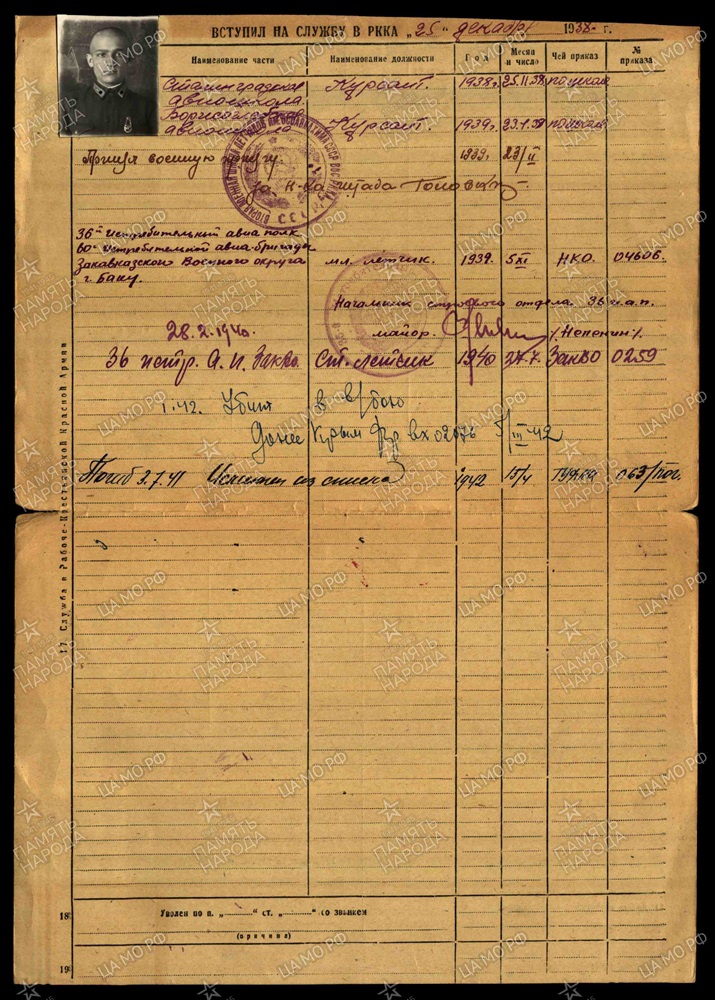 ВСТУПИЛ НА СЛУЖБУ В РККА „25“ декабря 1938 г.
Наименование части Наименование должности Год Месяц и число Чей приказ № приказа
Сталинградская Курсант. 1938г. 25.11.38 по школе
авиошкола.
Борисоглебская
авиошкола Курсант. 1939г. 23.1.39 по школе
Принял военную присягу. 1939г. 23/II
за н-ка штаба
36й истребительный авиа полк
60й истребительной авиа-бригады
Закавказского Военного округа мл. летчик. 1939. 5/XI НКО. 04606.
г. Баку.
Начальник строевого отдела 36 и.а.п.
28.2.1940. майор. /Непенин/.
36 истр. А. П. ЗакВО. Ст. Летчик 1940 ЗакВО 0259
1.42. Убит в в/бою
Донес Крым Фр вх 02076 5/III-42
Погиб 3.1.41 Исключен из списка 1942 15/4 063/пог.
17. Служба в Рабоче-Крестьянской Красной Армии
18 Уволен по п. „ “ ст. „ “ со званием
(причина)
19
ПАМЯТЬ НАРОДА
ЦАМО.РФ